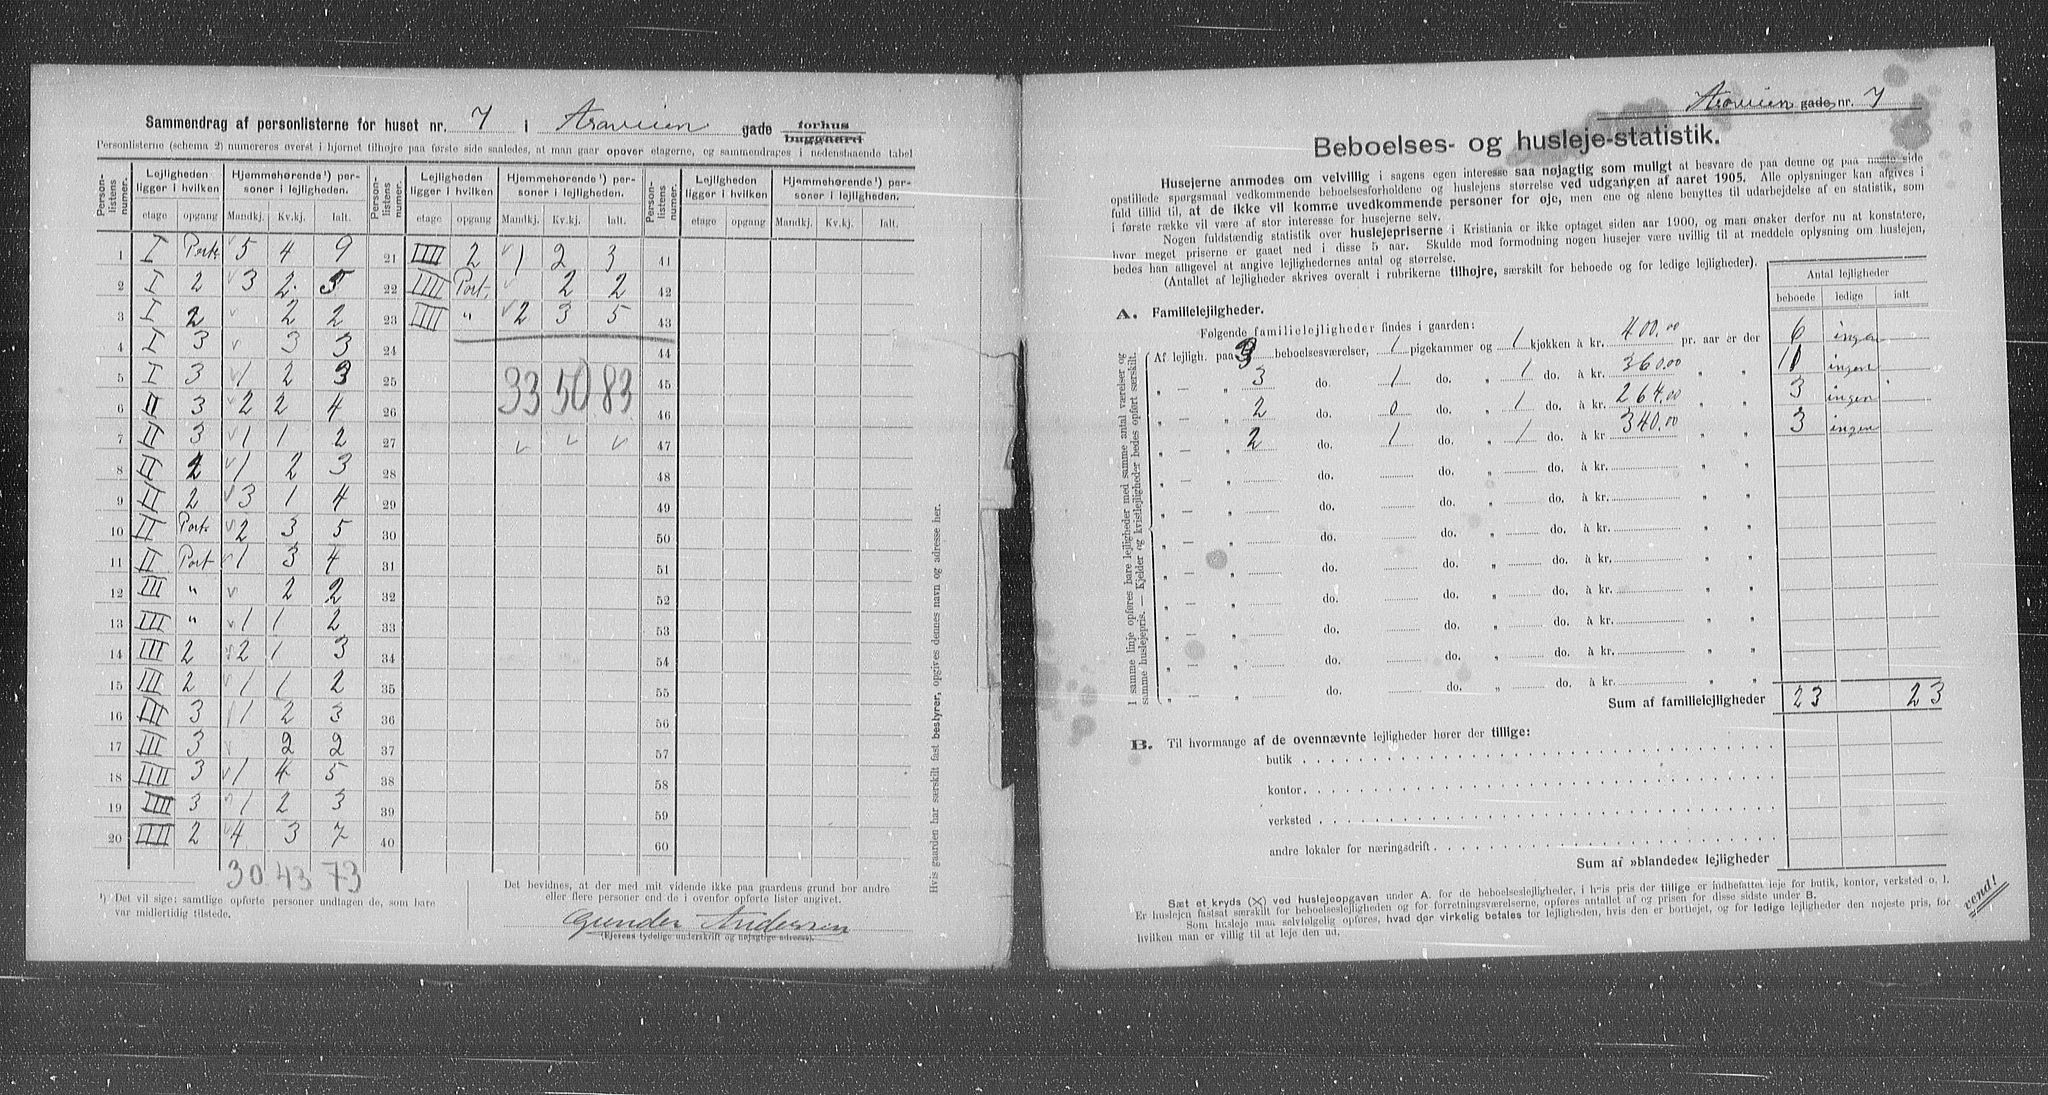 Sammendrag af personlisterne for huset nr. 7 i Asaveien gade forhus
buggaard
Personlisterne (schema 2) numereres øverst i hjørnet tilhøjre paa første side saaledes, at man gaar opover etagerne, og sammendrages i nedenstaaende tabel
Personlistens numer. Lejligheden ligger i hvilken Hjemmehørende¹) personer i lejligheden. Personlistens numer. Lejligheden ligger i hvilken Hjemmehørende¹) personer i lejligheden. Personlistens numer. Lejligheden ligger i hvilken Hjemmehørende¹) personer i lejligheden.
etage opgang Mandkj. Kv.kj. Ialt. etage opgang Mandkj. Kv.kj. Ialt. etage opgang Mandkj. Kv.kj. Ialt.
1 I Port. 5 4 9 21 IIII 2 1 2 3 41
2 I 2 3 2 5 22 IIII Port. 2 2 42
3 I 2 2 2 23 IIII " 2 3 5 43
4 I 3 3 3 24 44
5 I 3 1 2 3 25 33 50 83 45
6 II 3 2 2 4 26 46
7 II 3 1 1 2 27 47
8 II 2 1 2 3 28 48
9 II 2 3 1 4 29 49
10 II Port. 2 3 5 30 50
11 II Port 1 3 4 31 51
12 III " 2 2 32 52
13 III " 1 1 2 33 53
14 III 2 2 1 3 34 54
15 III 2 1 1 2 35 55
16 III 3 1 2 3 36 56
17 III 3 2 2 37 57
18 IIII 3 1 4 5 38 58
19 IIII 3 1 2 3 39 59
20 IIII 2 4 3 7 40 60
30 43 73
¹) Det vil sige: samtlige opførte personer undtagen de, som bare
var midlertidig tilstede.
Det bevidnes, at der med mit vidende ikke paa gaardens grund bor andre
eller flere personer end de i ovenfor opførte lister angivet.
Gunder Andersen
(Ejerens tydelige underskrift og nøjagtige adresse).
Hvis gaarden har særskilt fast bestyrer, opgives dennes navn og adresse her.
Asaveien gade nr. 7
Beboelses- og husleje-statistik.
Husejerne anmodes om velvillig i sagens egen interesse saa nøjagtig som muligt at besvare de paa denne og paa næste side
opstillede spørgsmaal vedkommende beboelsesforholdene og huslejens størrelse ved udgangen af aaret 1905. Alle oplysninger kan afgives i
fuld tillid til, at de ikke vil komme uvedkommende personer for øje, men ene og alene benyttes til udarbejdelse af en statistik, som
i første række vil være af stor interesse for husejerne selv.
Nogen fuldstændig statistik over huslejepriserne i Kristiania er ikke optaget siden aar 1900, og man ønsker derfor nu at konstatere,
hvor meget priserne er gaaet ned i disse 5 aar. Skulde mod formodning nogen husejer være uvillig til at meddele oplysning om huslejen,
bedes han alligevel at angive lejlighedernes antal og størrelse.
(Antallet af lejligheder skrives overalt i rubrikerne tilhøjre, særskilt for beboede og for ledige lejligheder).
Antal lejligheder
beboede ledige ialt
A. Familielejligheder.
Følgende familielejligheder findes i gaarden:
Af lejligh. paa 3 beboelsesværelser, 1 pigekammer og 1 kjøkken à kr. 400.00 pr. aar er der 6 ingen
" — " 3 do. 1 do. " 1 do. à kr. 360.00 " " 11 ingen
" — " 2 do. 0 do. " 1 do. à kr. 264.00 " " 3 ingen
" — " 2 do. 1 do. " 1 do. à kr. 340.00 " " 3 ingen
" — " do. do. " do. à kr. " "
" — " do. do. " do. à kr. " "
" — " do. do. " do. à kr. " "
" — " do. do. " do. à kr. " "
" — " do. do. " do. à kr. " "
" — " do. do. " do. à kr. " "
" — " do. do. " do. à kr. " "
" — " do. do. " do. à kr. " "
I samme linje opføres bare lejligheder med samme antal værelser og
samme huslejepris. — Kjelder og kvistlejligheder bedes opført særskilt.
Sum af familielejligheder 23 23
B. Til hvormange af de ovennævnte lejligheder hører der tillige:
butik
kontor
verksted
andre lokaler for næringsdrift
Sum af »blandede« lejligheder
Sæt et kryds (X) ved huslejeopgaven under A. for de beboelseslejligheder, i hvis pris der tillige er indbefattet leje for butik, kontor, verksted o. l.
Er huslejen fastsat særskilt for beboelseslejligheden og for forretningsværelserne, opføres antallet af og prisen for disse sidste under B.
Som husleje maa selvfølgelig opføres, hvad der virkelig betales for lejligheden, hvis den er bortlejet, og for ledige lejligheder den nøjeste pris, for
hvilken man er villig til at leje den ud.
vend!